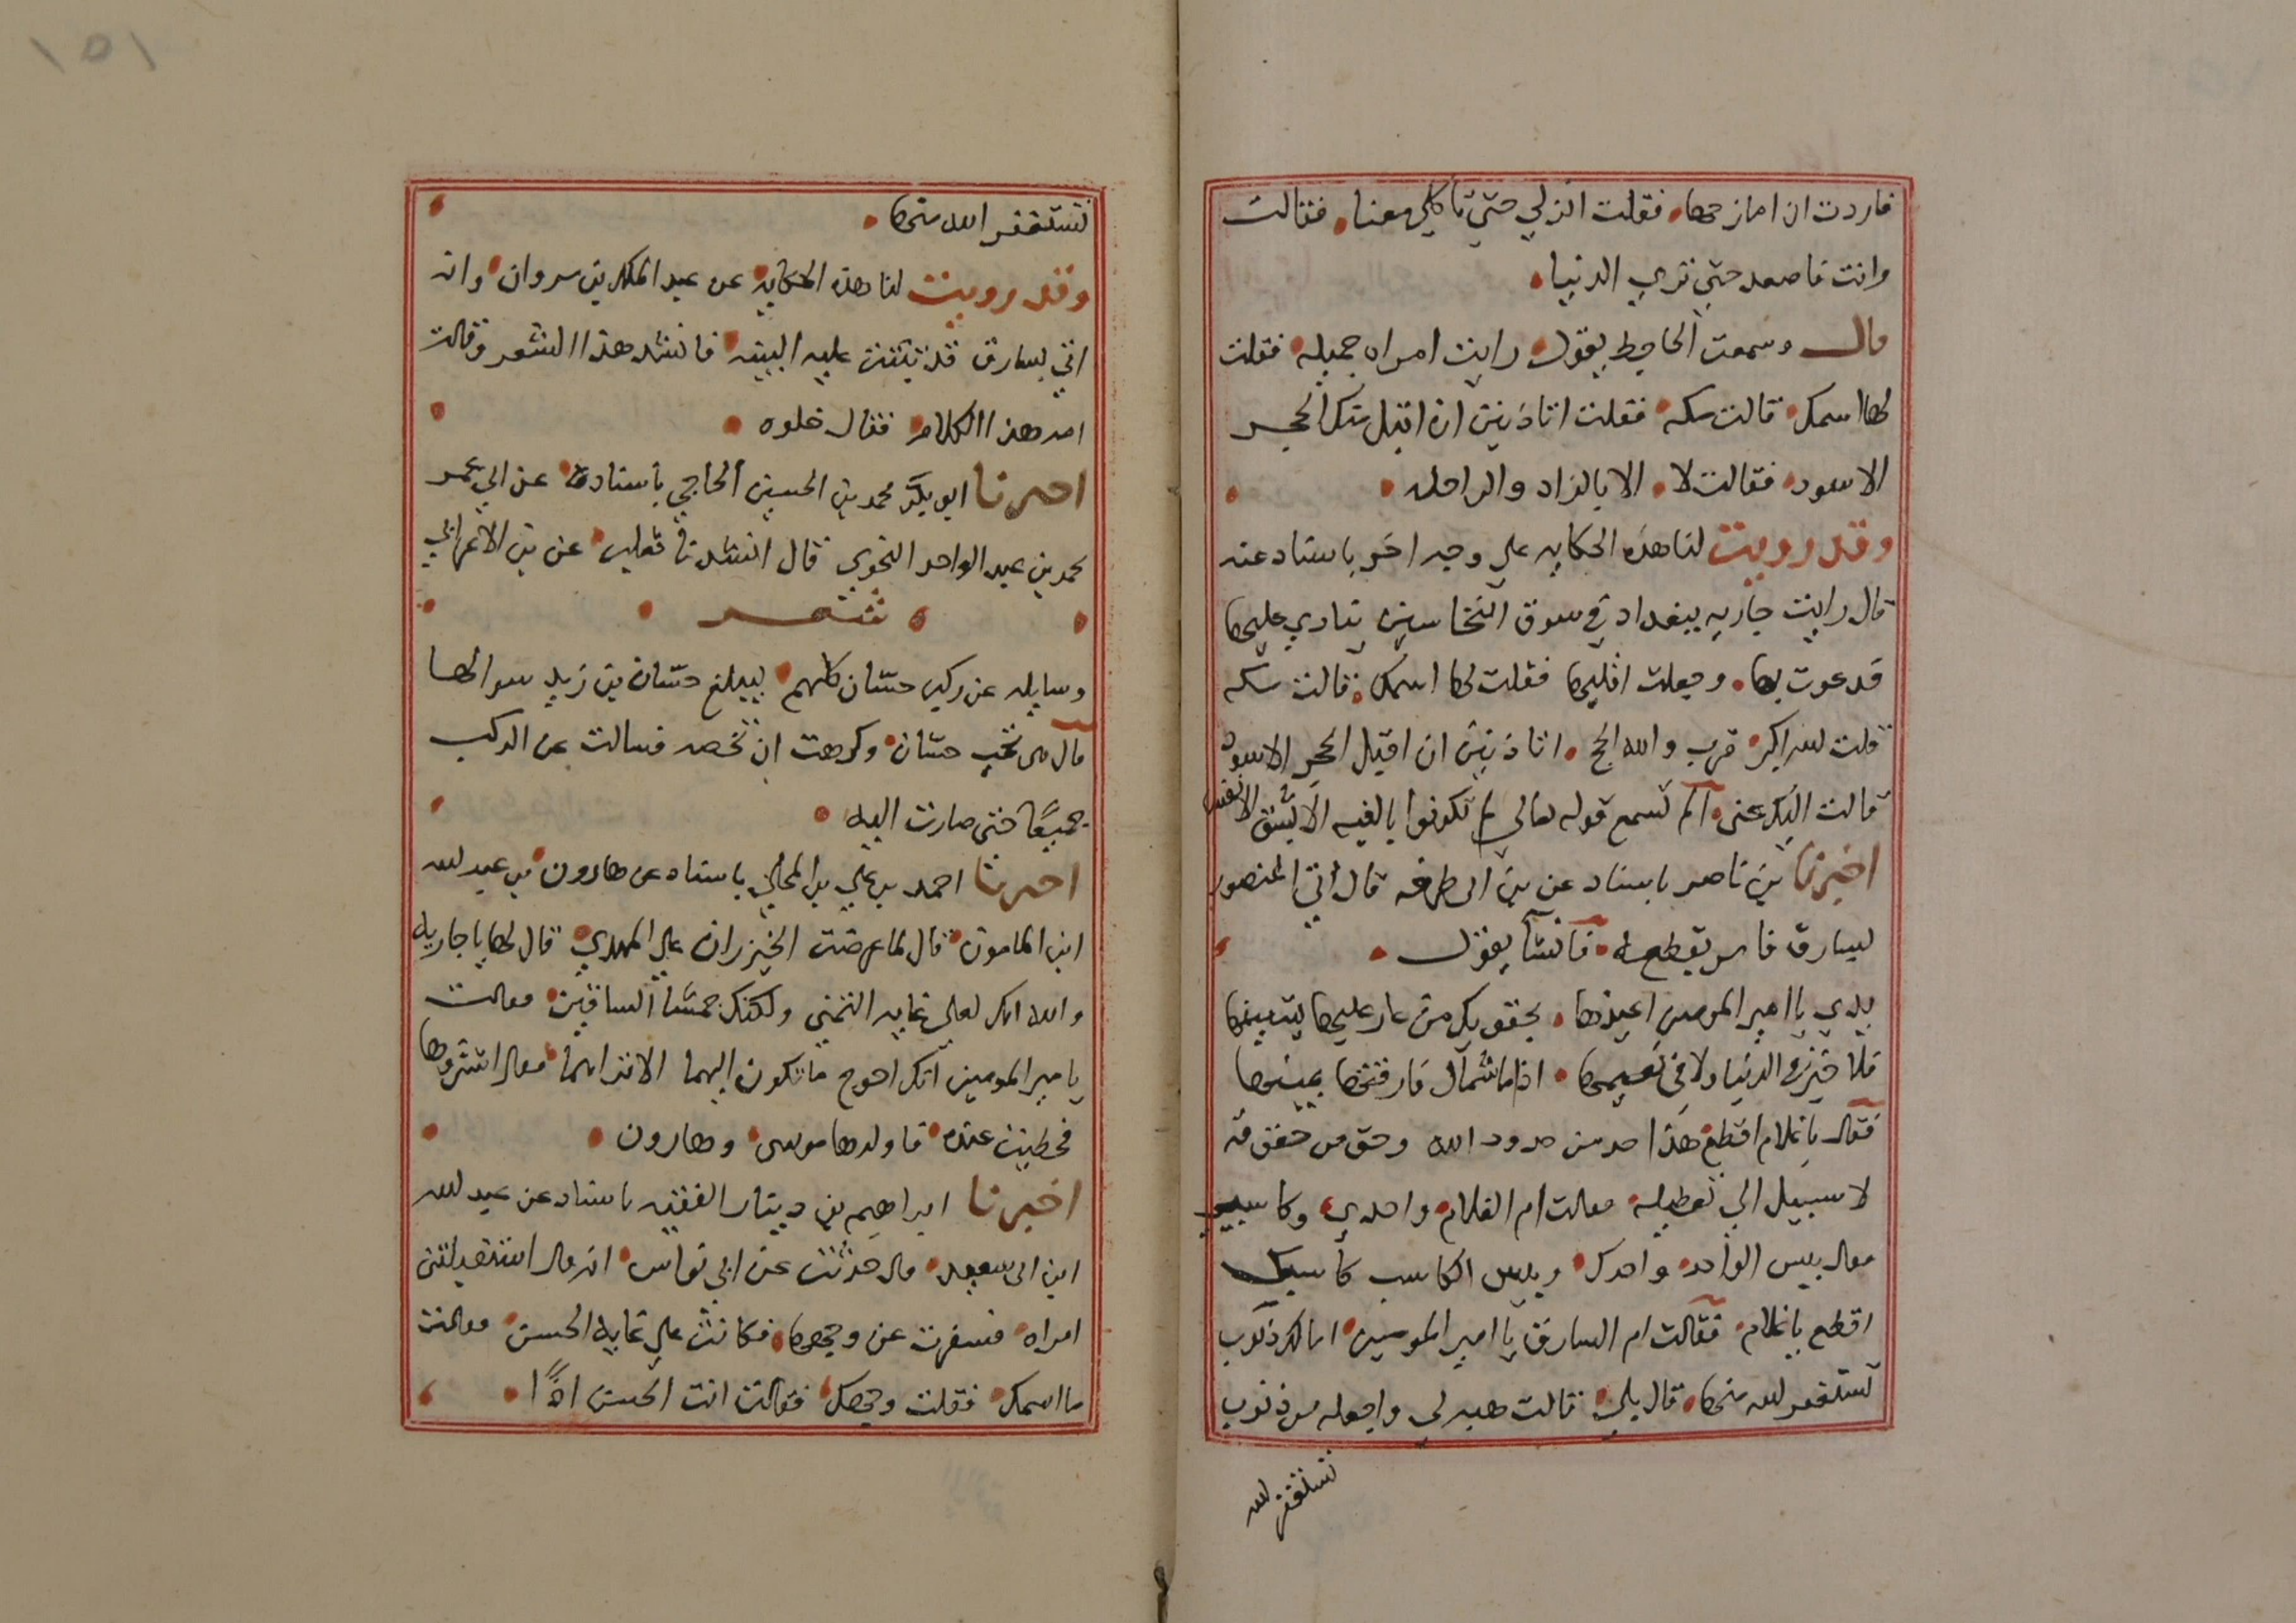 فاردت ان امازحها فقلت انزلي حتي تاكلي معنا فقالت
وانت فاصعد حتي تري الدنيا
قال وسمعت الجاحظ يقول رايت امراه جميله فقلت
لها اسمك قالت مكه فقلت اتاذنين ان اقبل منك الحجر
الاسود فقالت لا الا بالزاد والراحله
وقد رويت لنا هذه الحكايه علي وجه اخر باسناد عنه
قال رايت جاريه ببغداد في سوق النخاسين ينادي عليها
فدعوت بها وجعلت اقلبها فقلت لها اسمك قالت مكه
قلت لله اكبر قرب والله الحج اتاذنين ان اقبل الحجر الاسود
قالت اليك عني الم تسمع قوله تعالي لم تكونوا بالغيه الا بشق الانفس
اخبرنا بن ناصر باسناد عن بن ابي طرفه قال اتي المنصور
بسارق فامر بقطعه فانشا يقول
يدي يا امير المومنين اعيذها بحقويك من عار عليها يشينها
فلا خير في الدنيا ولا في نعيمها اذا ما شمال فارقتها يمينها
فقال يا غلام اقطع هذا حد من حدود الله وحق من حقوقه
لا سبيل الي تعطيله فقالت ام الغلام واحدي وكاسبي
فقال بيس الواحد واحدك وبيس الكاسب كاسبك
اقطع يا غلام فقالت ام السارق يا امير المومنين اما لك ذنوب
تستغفر لله منها قال بلي قالت هبه لي واجعله من ذنوب
تستغفر لله
١٥١
تستغفر الله منها
وقد رويت لنا هذه الحكايه عن عبد الملك بن مروان وانه
اتي بسارق قد ثبتت عليه البينه فانشد هذا الشعر وقالت
امه هذا الكلام فقال خلوه
اخبرنا ابو بكر محمد بن الحسين الحاجي باسناده عن ابي عمر
محمد بن عبد الواحد النحوي قال انشدنا ثعلب عن بن الاعرابي
شعر
وسايله عن ركب حسان كلهم ليبلغ حسان بن زيد سوالها
قال هي تحب حسان وكرهت ان تخصه فسالت عن الركب
جميعًا حتي صارت اليه
اخبرنا احمد بن علي بن المجلي باسناده عن هارون بن عبد لله
ابن المامون قال لما عرضت الخيزران علي المهدي قال لها يا جاريه
والله انك لعلي غايه التمني ولكنك حمشا الساقين فقالت
يا مير المومنين انك احوج ما تكون اليهما لا تراهما فقال اشتروها
فحظيت عنده فاولدها موسي وهارون
اخبرنا ابراهيم بن دينار الفقيه باسناد عن عبد لله
ابن ابي سعيد قال حدثت عن ابي نواس انه قال استقبلتني
امراه فسفرت عن وجهها فكانت علي غايه الحسن فقالت
ما اسمك فقلت وجهك فقالت انت الحسن اذًا